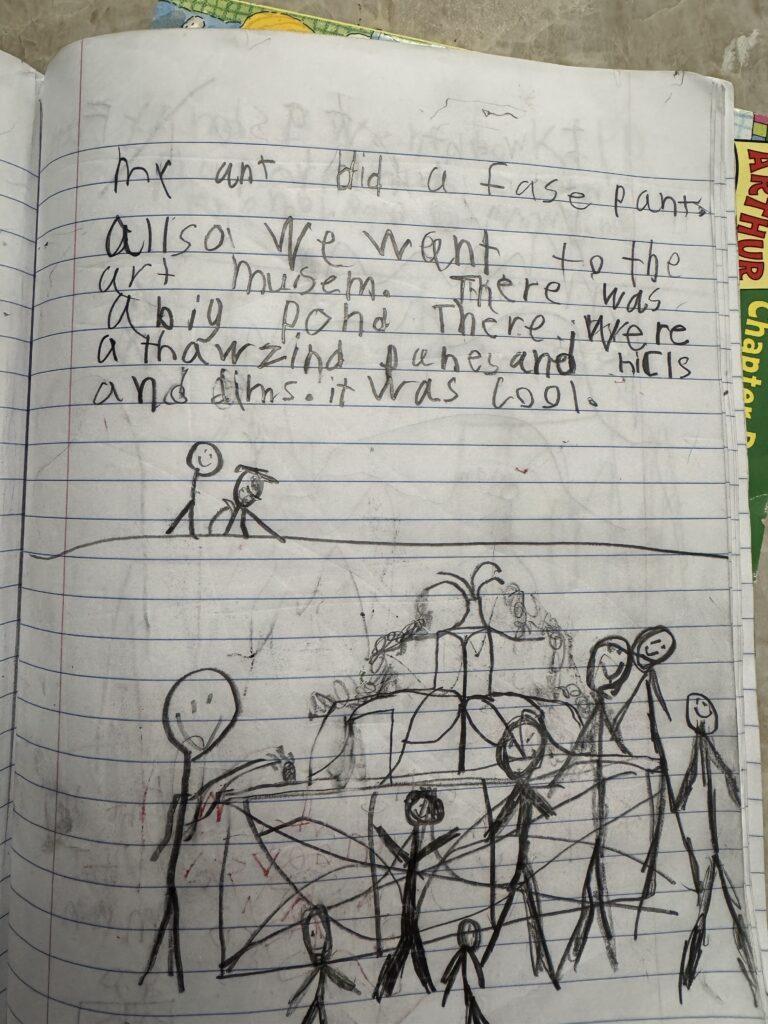 my ant did a fase pants.
allso we want to the
art musem. There was
a big pond There were
a thawzind panes and nicls
and dims. it was cool.
ARTHUR
Chapter